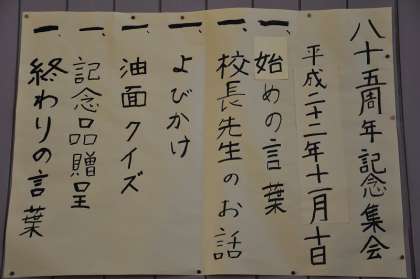 八十五周年記念集会
平成二十二年十一月十日
一、始めの言葉
一、校長先生のお話
一、よびかけ
一、油面クイズ
一、記念品贈呈
一、終わりの言葉